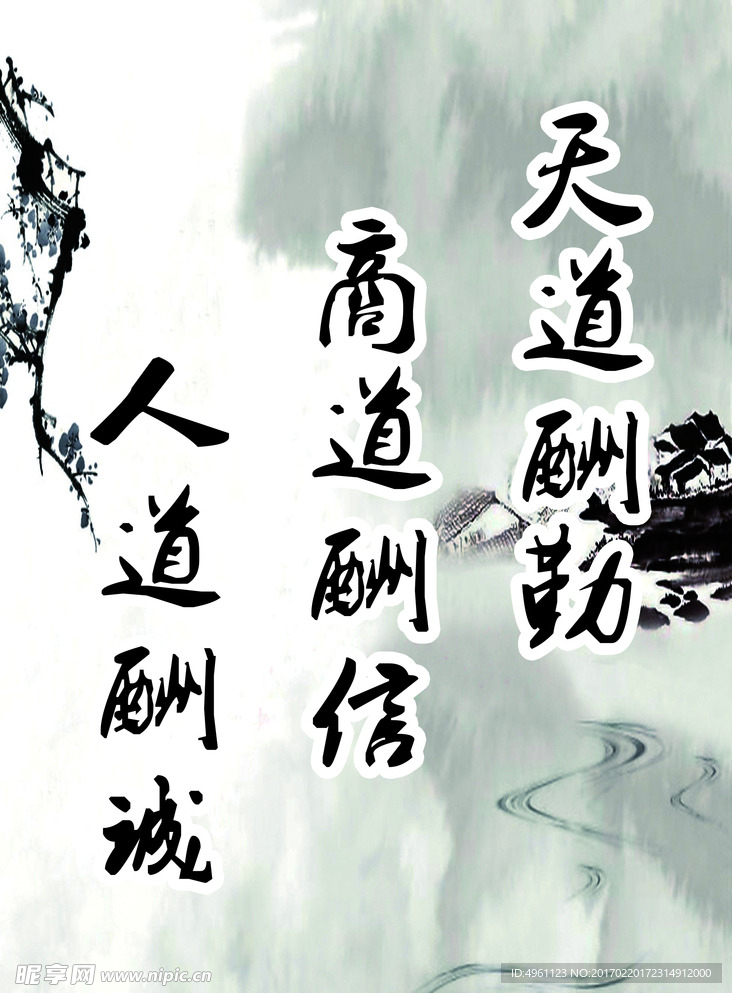 天道酬勤
商道酬信
人道酬诚
昵享网 www.nipic.cn
ID:4961123 NO:20170220172314912000